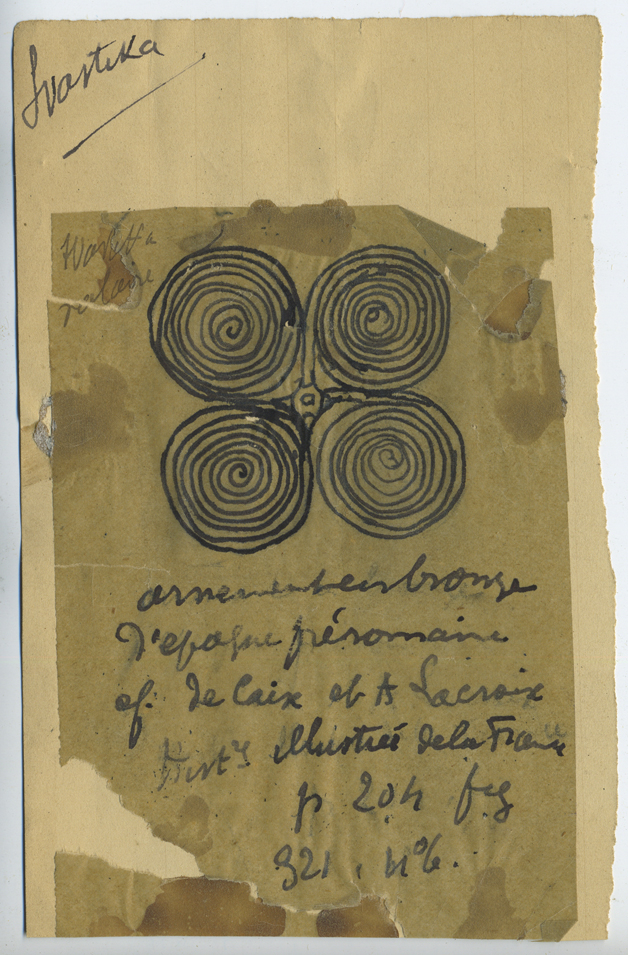 Svastika
ornement en bronze
d'epoque préromaine
cf. de Caix et A Lacroix
Histre illustrée de la France
p 204 fig
321. n°6.